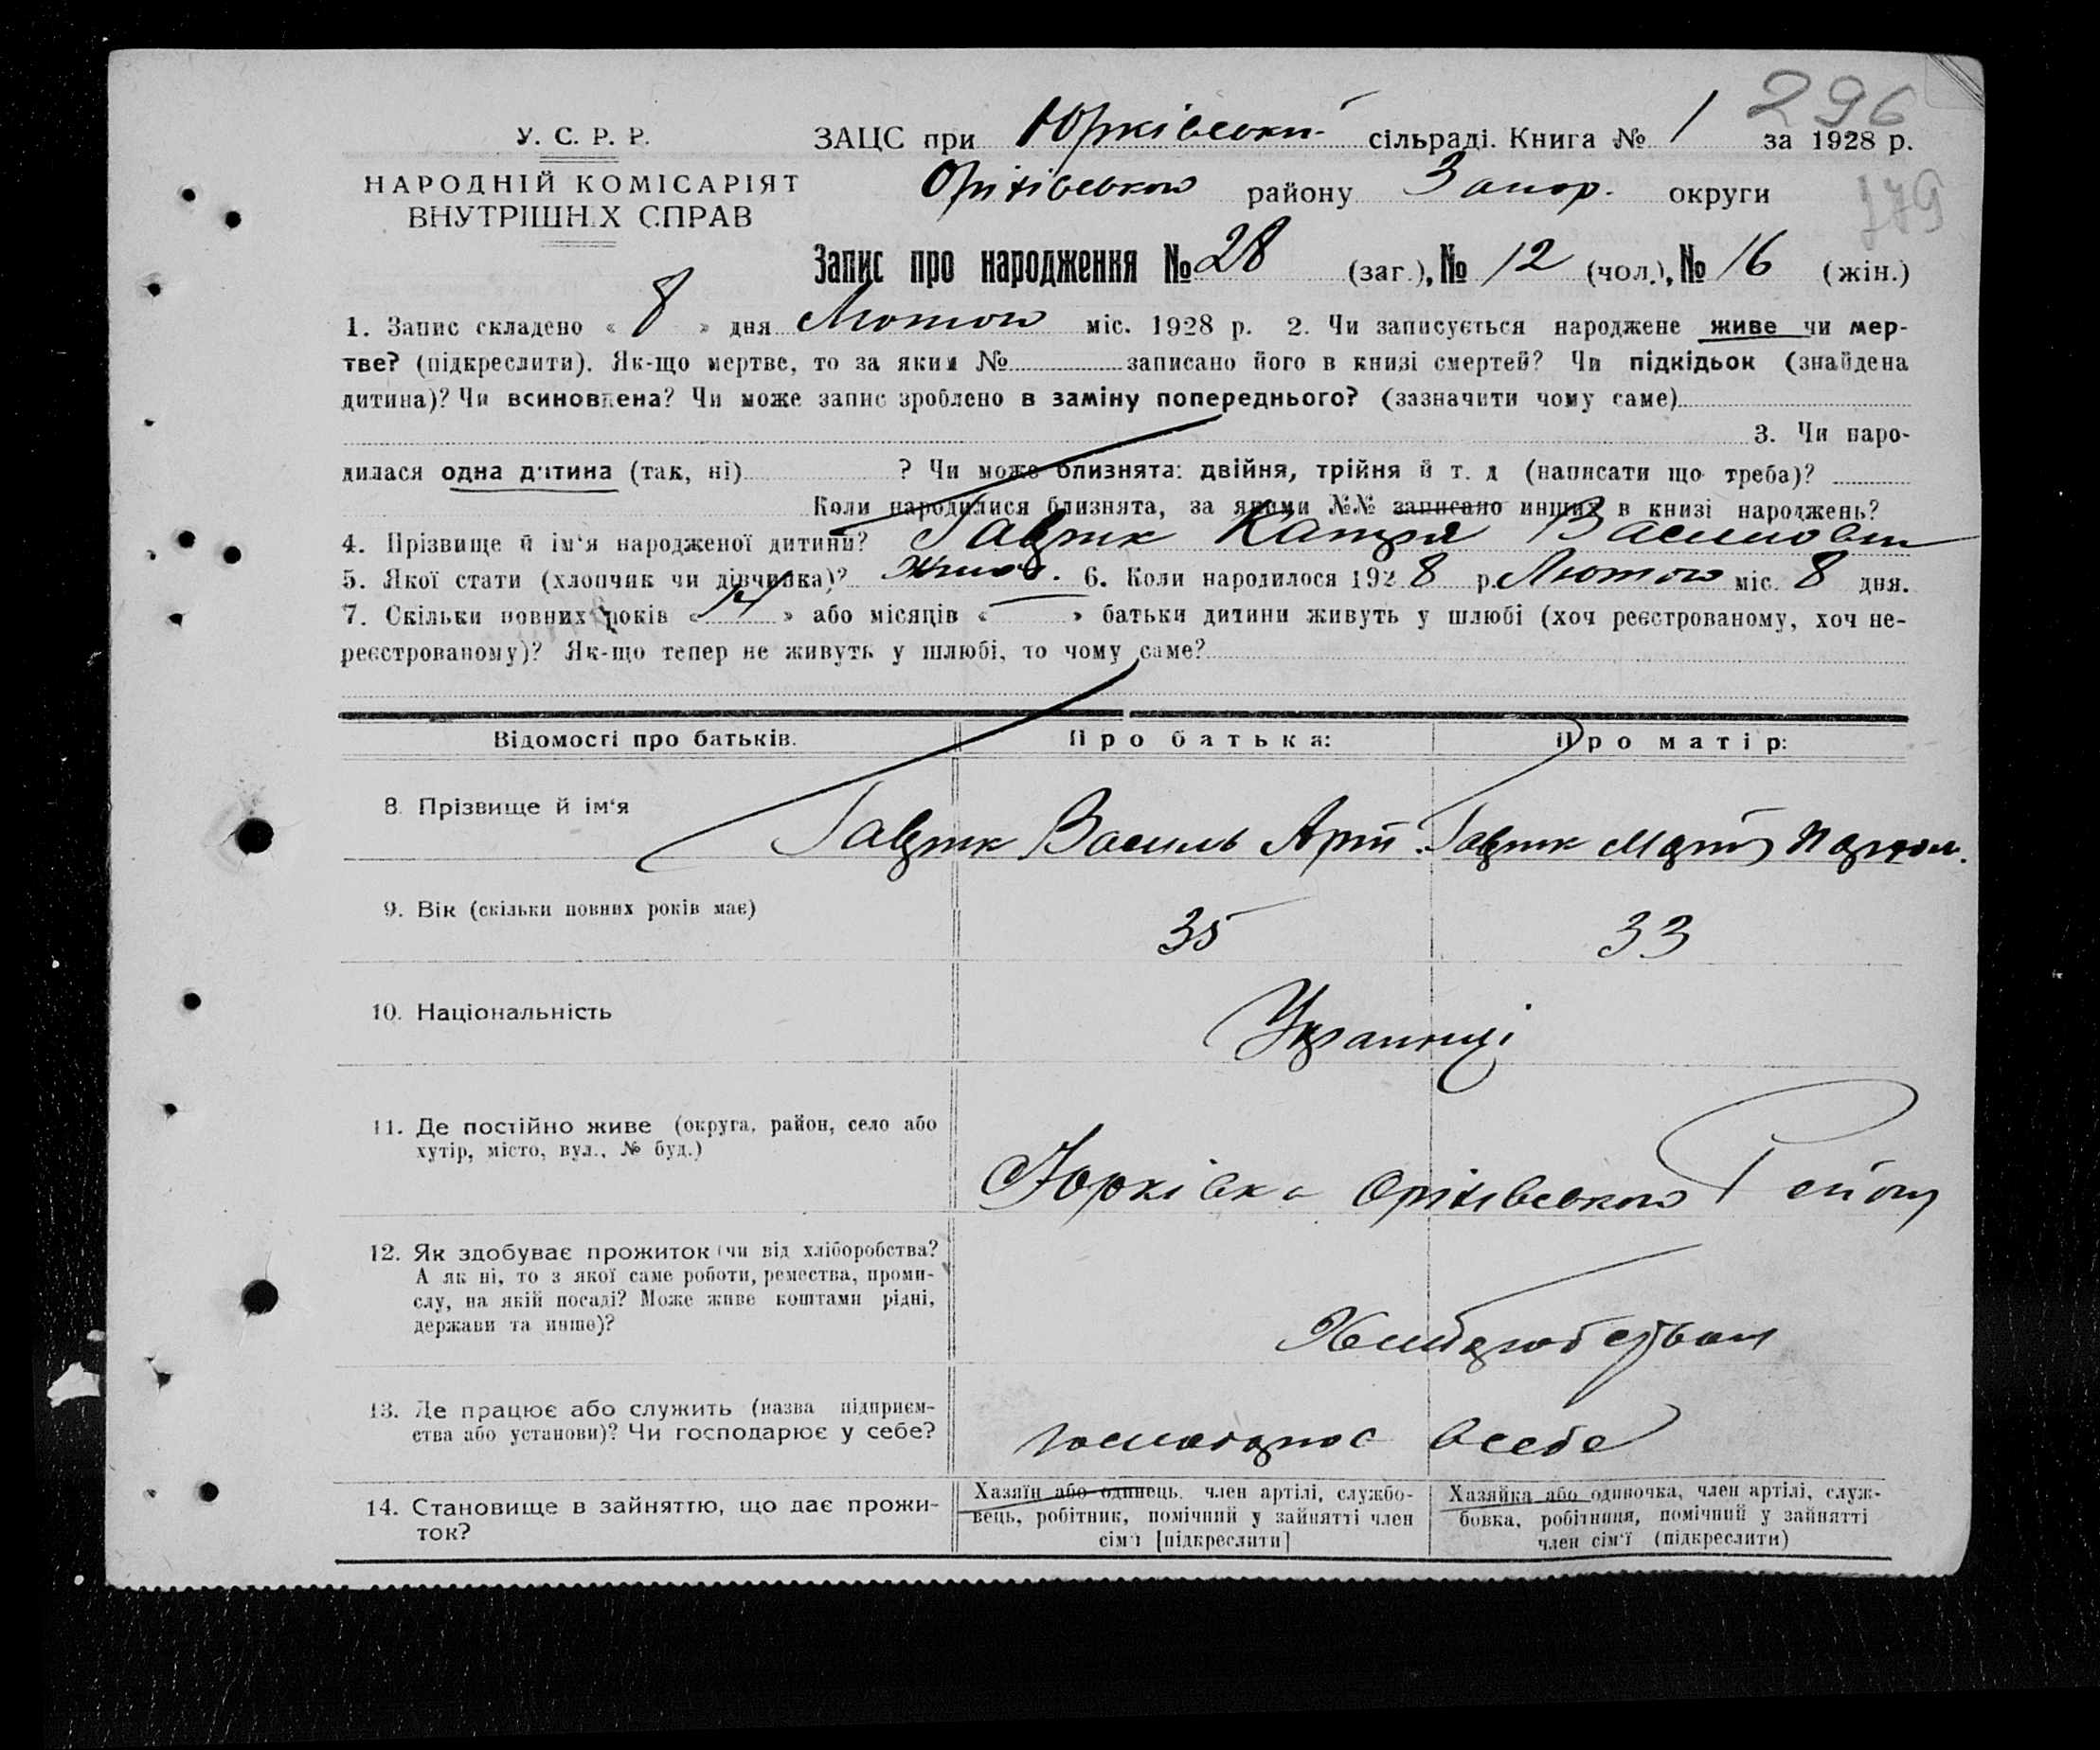 296
У. С. Р. Р.
ЗАЦС при Юрківський сільраді. Книга № 1 за 1928 р.
НАРОДНІЙ КОМІСАРІЯТ
ВНУТРІШНІХ СПРАВ
Оріхівського району Запор. округи
179
Запис про народження № 28 (заг.), № 12 (чол.), № 16 (жін.)
1. Запис складено « 8 » дня Лютого міс. 1928 р. 2. Чи записується народжене живе чи мер-
тве? (підкреслити). Як-що мертве, то за яким № записано його в книзі смертей? Чи підкідьок (знайдена
дитина)? Чи всиновлена? Чи може запис зроблено в заміну попереднього? (зазначити чому саме)
3. Чи наро-
дилася одна дитина (так, ні) ? Чи може близнята: двійня, трійня й т. д (написати що треба)?
Коли народилися близнята, за якими №№ записано инших в книзі народжень?
4. Прізвище й ім'я народженої дитини? Гаврик Катря Василовн
5. Якої стати (хлопчик чи дівчинка)? 6. Коли народилося 1928 р. Лютого міс. 8 дня.
7. Скільки повних років « 14 » або місяців « — » батьки дитини живуть у шлюбі (хоч реєстрованому, хоч не-
реєстрованому)? Як-що тепер не живуть у шлюбі, то чому саме?
Відомості про батьків. Про батька: Про матір:
8. Прізвище й ім'я Гаврик Василь Арт. Гаврик
9. Вік (скільки повних років має) 35 33
10. Національність Українці
11. Де постійно живе (округа, район, село або
хутір, місто, вул., № буд.)
Юрківка Оріхівського Району
12. Як здобуває прожиток (чи від хліборобства?
А як ні, то з якої саме роботи, ремества, проми-
слу, на якій посаді? Може живе коштами рідні,
держави та инше)?
Хліборобством
13. Де працює або служить (назва підприєм-
ства або установи)? Чи господарює у себе?
в себе
14. Становище в зайняттю, що дає прожи-
ток?
Хазяїн або одинець, член артілі, службо-
вець, робітник, помічний у зайнятті член
сім'ї [підкреслити]
Хазяйка або одиночка, член артілі, служ-
бовка, робітниця, помічний у зайнятті
член сім'ї (підкреслити)